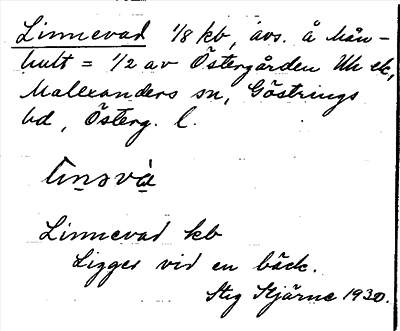 Linnevad 1/8 kb, avs. å Mån-
hult = 1/2 av Östergården Uh ek,
Malexanders sn, Göstrings
hd, Österg. l.
Linnevad kb
Ligger vid en bäck.
Stig Stjärne 1930.